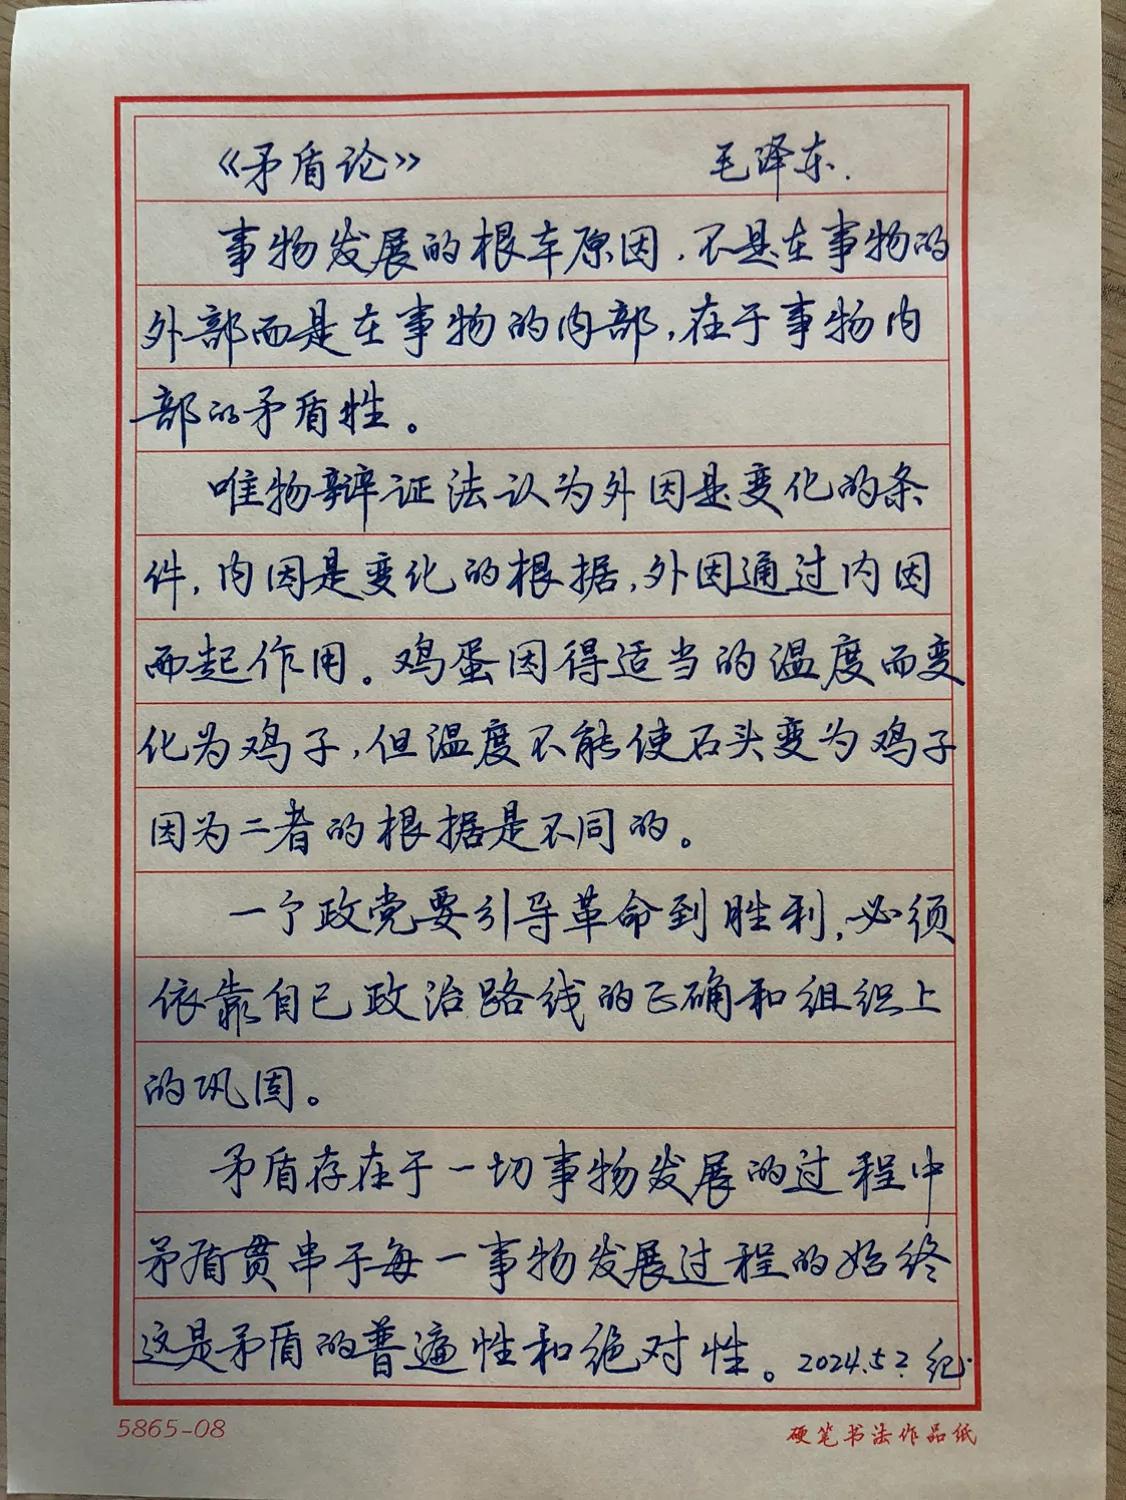 《矛盾论》 毛泽东.
事物发展的根本原因，不是在事物的
外部而是在事物的内部，在于事物内
部的矛盾性。
唯物辩证法认为外因是变化的条
件，内因是变化的根据，外因通过内因
而起作用。鸡蛋因得适当的温度而变
化为鸡子，但温度不能使石头变为鸡子
因为二者的根据是不同的。
一个政党要引导革命到胜利，必须
依靠自己政治路线的正确和组织上
的巩固。
矛盾存在于一切事物发展的过程中
矛盾贯串于每一事物发展过程的始终
这是矛盾的普遍性和绝对性。2024.5.2. 纪.
5865-08 硬笔书法作品纸